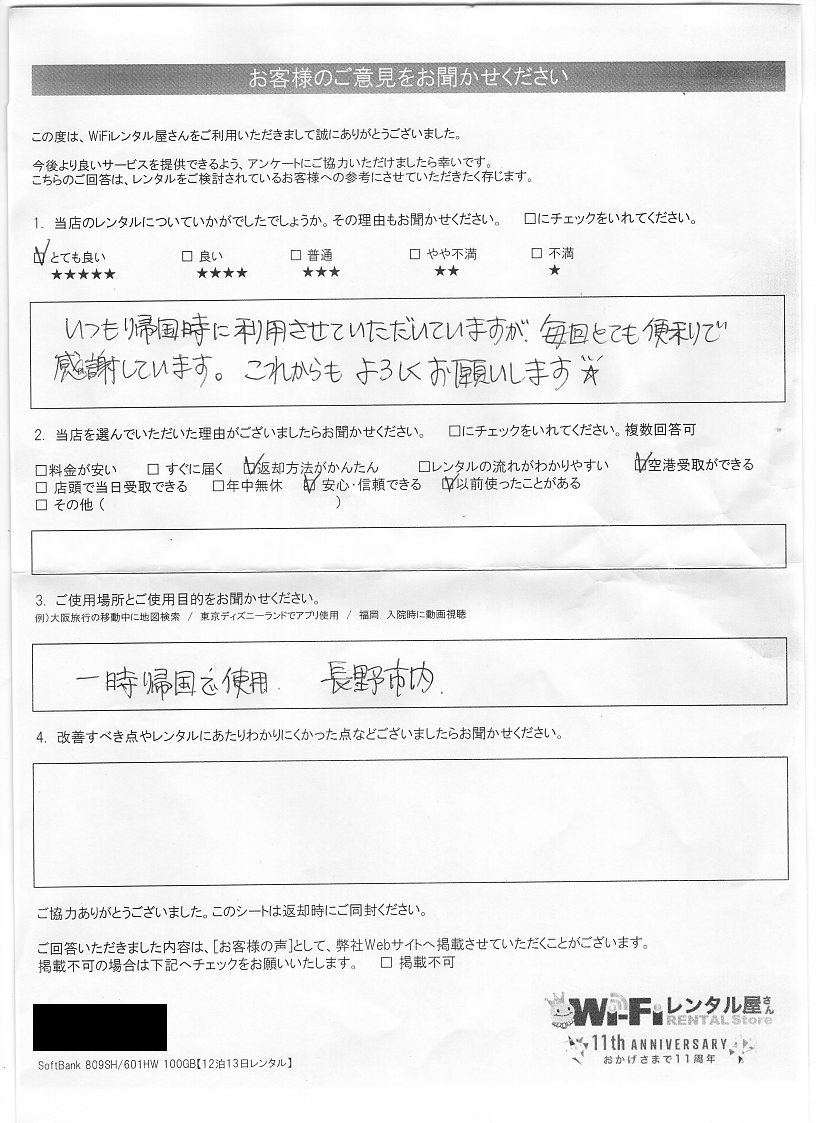 お客様のご意見をお聞かせください
この度は、WiFiレンタル屋さんをご利用いただきまして誠にありがとうございました。
今後より良いサービスを提供できるよう、アンケートにご協力いただけましたら幸いです。
こちらのご回答は、レンタルをご検討されているお客様への参考にさせていただきたく存じます。
1. 当店のレンタルについていかがでしたでしょうか。その理由もお聞かせください。 □にチェックをいれてください。
☑ とても良い □ 良い □ 普通 □ やや不満 □ 不満
★★★★★ ★★★★ ★★★ ★★ ★
いつもり帰国時に利用させていただいていますが、毎回とても便利で
感謝しています。これからもよろしくお願いします☆
2. 当店を選んでいただいた理由がございましたらお聞かせください。 □にチェックをいれてください。複数回答可
□料金が安い □ すぐに届く ☑返却方法がかんたん □レンタルの流れがわかりやすい ☑空港受取ができる
□ 店頭で当日受取できる □年中無休 ☑ 安心・信頼できる ☑以前使ったことがある
□ その他 ( )
3. ご使用場所とご使用目的をお聞かせください。
例)大阪旅行の移動中に地図検索 / 東京ディズニーランドでアプリ使用 / 福岡 入院時に動画視聴
一時帰国で使用. 長野市内.
4. 改善すべき点やレンタルにあたりわかりにくかった点などございましたらお聞かせください。
ご協力ありがとうございました。このシートは返却時にご同封ください。
ご回答いただきました内容は、[お客様の声]として、弊社Webサイトへ掲載させていただくことがございます。
掲載不可の場合は下記へチェックをお願いいたします。 □ 掲載不可
Wi-Fiレンタル屋さん
RENTAL Store
11th ANNIVERSARY
おかげさまで11周年
SoftBank 809SH/601HW 100GB【12泊13日レンタル】